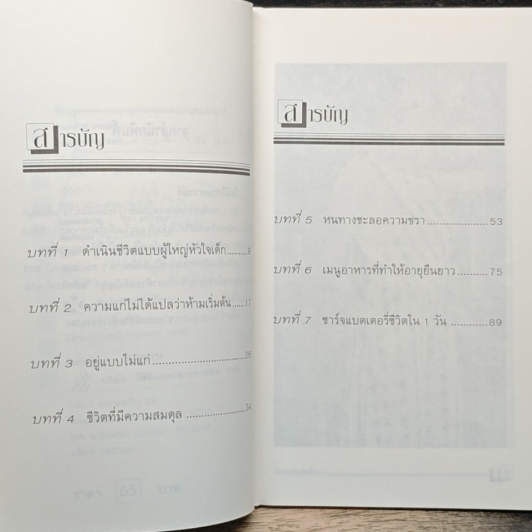 สารบัญ
บทที่ 1 ดำเนินชีวิตแบบผู้ใหญ่หัวใจเด็ก..........9
บทที่ 2 ความแก่ไม่ได้แปลว่าห้ามเริ่มต้น.....17
บทที่ 3 อยู่แบบไม่แก่........................26
บทที่ 4 ชีวิตที่มีความสมดุล ................34
สารบัญ
บทที่ 5 หนทางชะลอความชรา..................53
บทที่ 6 เมนูอาหารที่ทำให้อายุยืนยาว.........75
บทที่ 7 ชาร์จแบตเตอรี่ชีวิตใน 1 วัน..........89